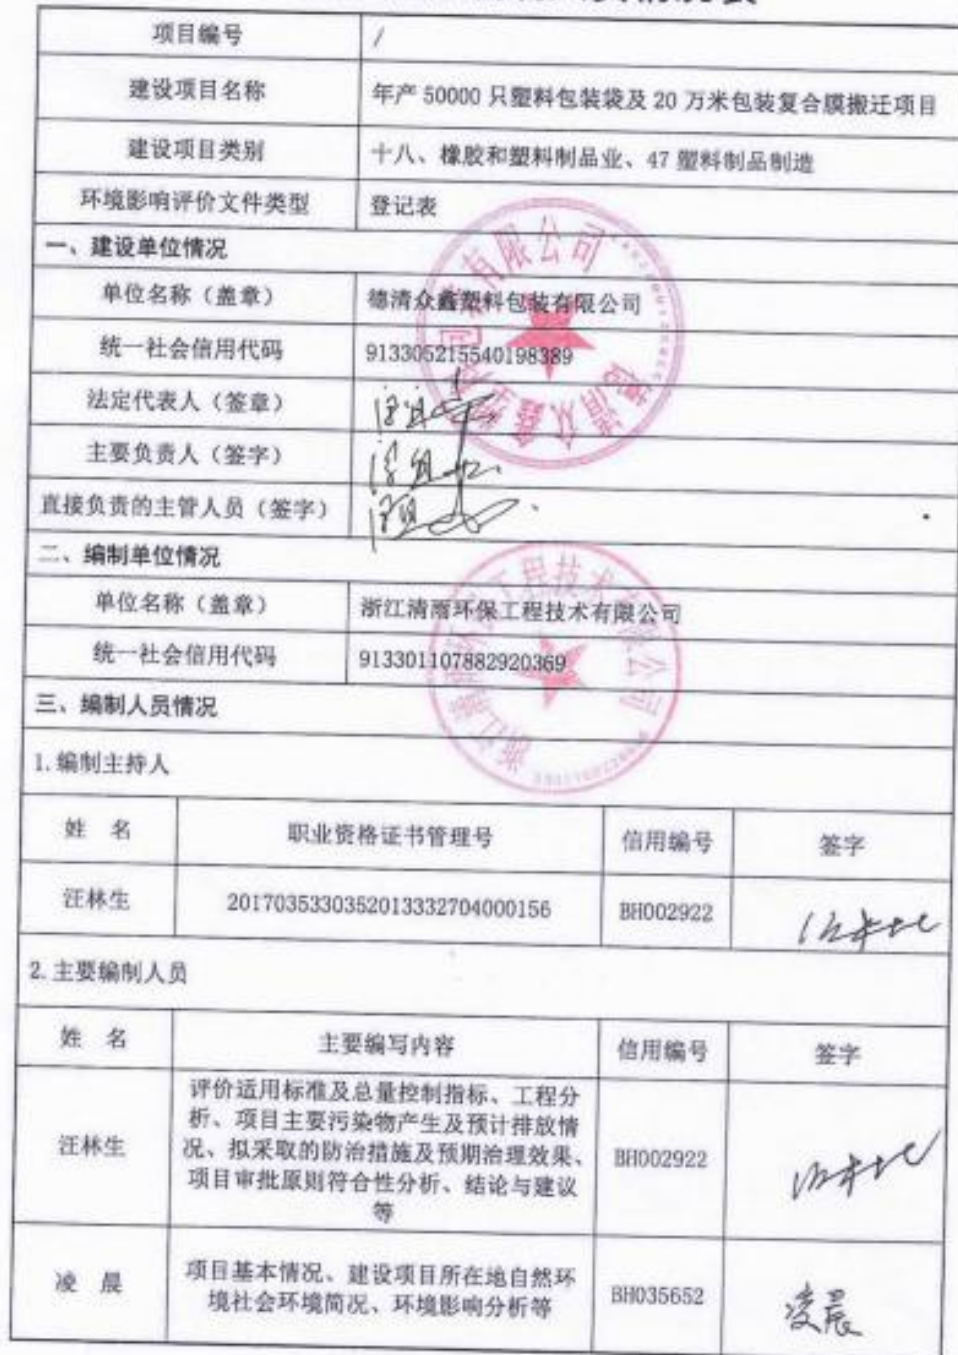 项目编号 /
建设项目名称 年产 50000 只塑料包装袋及 20 万米包装复合膜搬迁项目
建设项目类别 十八、橡胶和塑料制品业、47 塑料制品制造
环境影响评价文件类型 登记表
一、建设单位情况
单位名称（盖章） 德清众鑫塑料包装有限公司
统一社会信用代码 913305215540198389
法定代表人（签章）
主要负责人（签字）
直接负责的主管人员（签字）
二、编制单位情况
单位名称（盖章） 浙江清雨环保工程技术有限公司
统一社会信用代码 913301107882920369
三、编制人员情况
1.编制主持人
姓 名 职业资格证书管理号 信用编号 签字
汪林生 2017035330352013332704000156 BH002922
2.主要编制人员
姓 名 主要编写内容 信用编号 签字
汪林生 评价适用标准及总量控制指标、工程分
析、项目主要污染物产生及预计排放情
况、拟采取的防治措施及预期治理效果、 BH002922
项目审批原则符合性分析、结论与建议
等
凌 晨 项目基本情况、建设项目所在地自然环
境社会环境简况、环境影响分析等 BH035652 凌晨